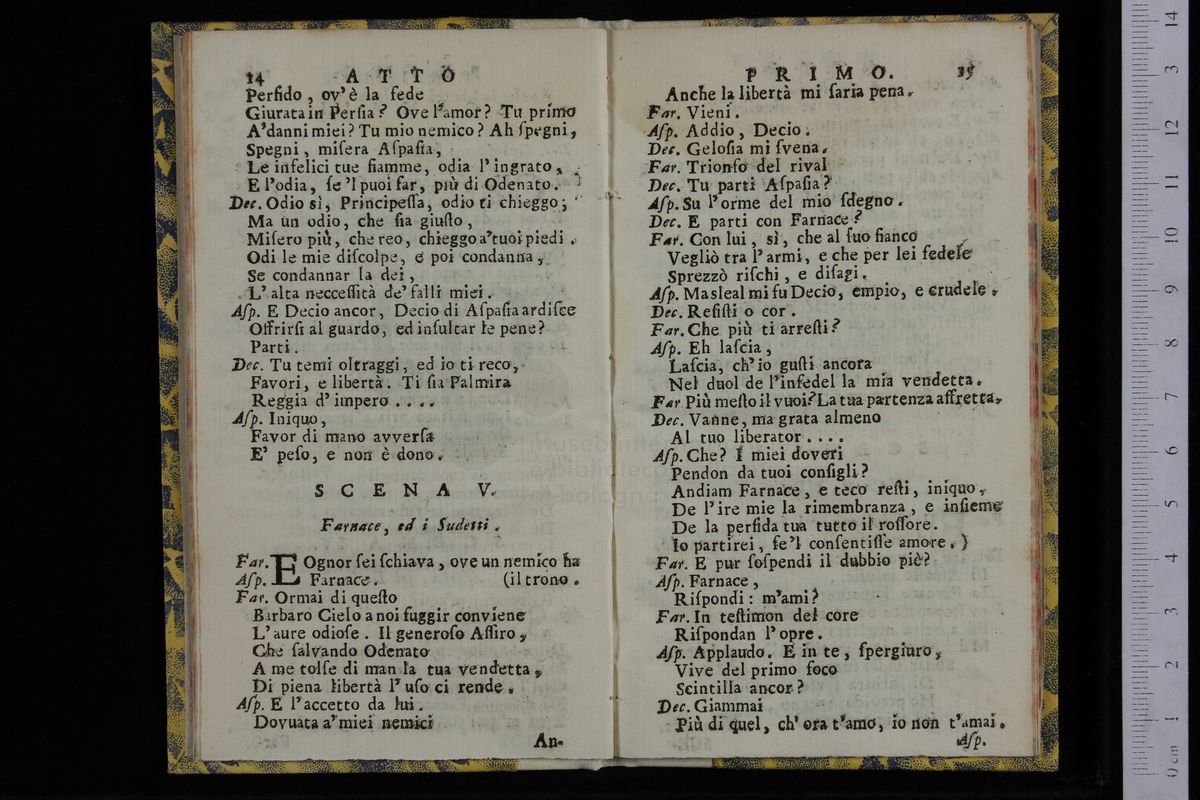 14 ATTO
Perfido, ov'è la fede
Giurata in Persia? Ove l'amor? Tu primo
A'danni miei? Tu mio nemico? Ah spegni,
Spegni, misera Aspasia,
Le infelici tue fiamme, odia l'ingrato,
E l'odia, se 'l puoi far, più di Odenato.
Dec. Odio sì, Principessa, odio ti chieggo;
Ma un odio, che sia giusto,
Misero più, che reo, chieggo a'tuoi piedi.
Odi le mie discolpe, e poi condanna,
Se condannar sa dei,
L'alta neccessità de' falli miei.
Asp. E Decio ancor, Decio di Aspasia ardisce
Offrirsi al guardo, ed insultar le pene?
Parti.
Dec. Tu temi oltraggi, ed io ti reco,
Favori, e libertà. Ti sia Palmira
Reggia d'impero ....
Asp. Iniquo,
Favor di mano avversa
E' peso, e non è dono.
SCENA V.
Farnace, ed i Sudetti.
Far. E Ognor sei schiava, ove un nemico ha
Asp. Farnace. (il trono.
Far. Ormai di questo
Barbaro Cielo a noi fuggir conviene
L'aure odiose. Il generoso Assiro,
Che salvando Odenato
A me tolse di man la tua vendetta,
Di piena libertà l'uso ci rende.
Asp. E l'accetto da lui.
Dovuata a'miei nemici
An-
PRIMO. 15
Anche la libertà mi saria pena.
Far. Vieni.
Asp. Addio, Decio.
Dec. Gelosia mi svena.
Far. Trionfo del rival
Dec. Tu parti Aspasia?
Asp. Su l'orme del mio sdegno.
Dec. E parti con Farnace?
Far. Con lui, sì, che al suo fianco
Vegliò tra l'armi, e che per lei fedele
Sprezzò rischi, e disagi.
Asp. Ma sleal mi fu Decio, empio, e crudele.
Dec. Resisti o cor.
Far. Che più ti arresti?
Asp. Eh lascia,
Lascia, ch'io gusti ancora
Nel duol de l'infedel la mia vendetta.
Far Più mesto il vuoi? La tua partenza affretta.
Dec. Vanne, ma grata almeno
Al tuo liberator ....
Asp. Che? I miei doveri
Pendon da tuoi consigli?
Andiam Farnace, e teco resti, iniquo,
De l'ire mie la rimembranza, e insieme
De la perfida tua tutto il rossore.
Io partirei, se'l consentisse amore.)
Far. E pur sospendi il dubbio piè?
Asp. Farnace,
Rispondi: m'ami?
Far. In testimon del core
Rispondan l'opre.
Asp. Applaudo. E in te, spergiuro,
Vive del primo foco
Scintilla ancor?
Dec. Giammai
Più di quel, ch'ora t'amo, io non t'amai.
Asp.